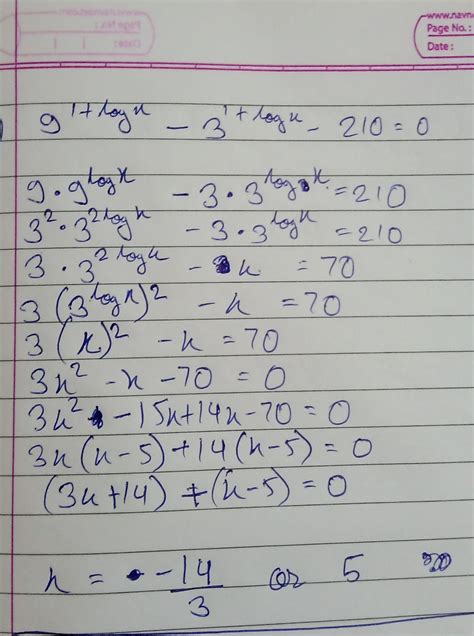 www.navn
Page No. :
Date :
9^{1+log x} - 3^{1+log x} - 210 = 0
9 · 9^{log x} - 3 · 3^{log x} = 210
3² · 3^{2 log x} - 3 · 3^{log x} = 210
3 · 3^{2 log x} - x = 70
3 (3^{log x})² - x = 70
3 (x)² - x = 70
3x² - x - 70 = 0
3x² - 15x + 14x - 70 = 0
3x (x - 5) + 14 (x - 5) = 0
(3x + 14) + (x - 5) = 0
x = -14/3 or 5